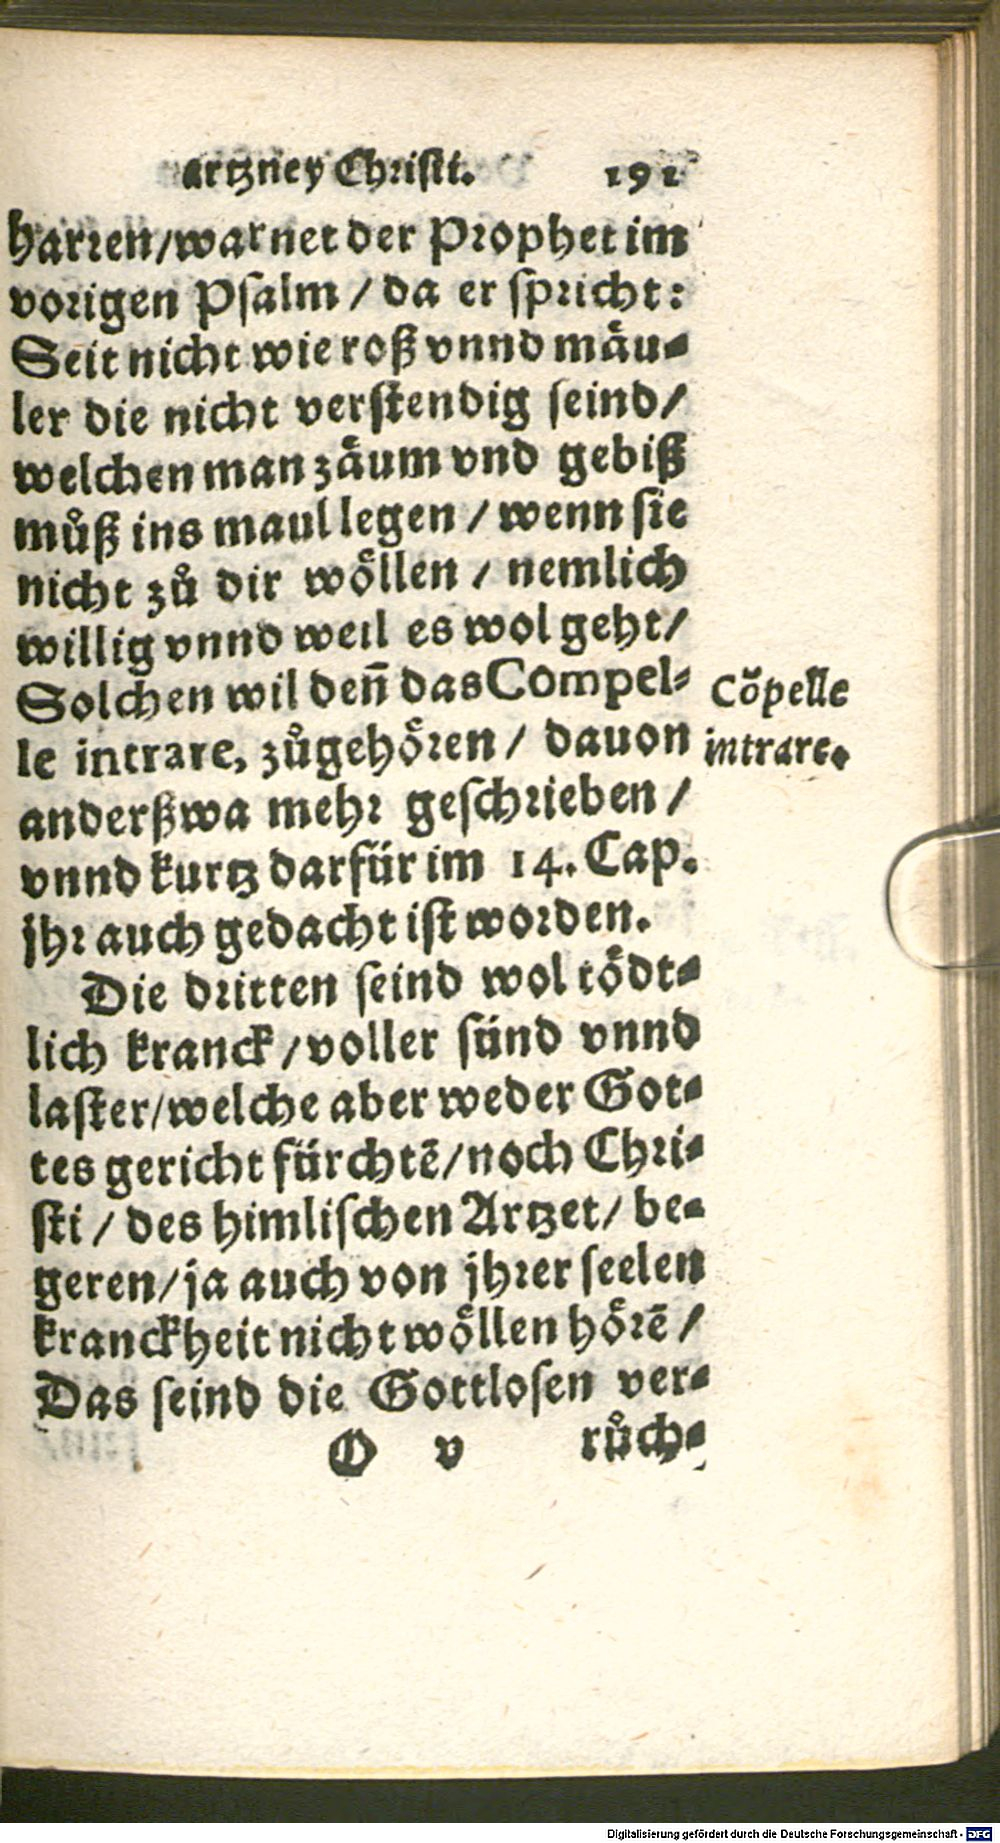 artzney Christi. 191
harren/warnet der Prophet im
vorigen Psalm / da er spricht:
Seit nicht wie roß vnnd mäu-
ler die nicht verstendig seind/
welchen man zäum vnd gebiß
můß ins maul legen / wenn sie
nicht zů dir wöllen / nemlich
willig vnnd weil es wol geht/
Solchen wil deñ das Compel-
le intrare, zůgehören / dauon
Cõpelle
intrare.
anderßwa mehr geschrieben /
vnnd kurtz darfür im 14. Cap.
jhr auch gedacht ist worden.
Die dritten seind wol tödt-
lich kranck / voller sünd vnnd
laster/welche aber weder Got-
tes gericht fürchtẽ/noch Chri-
sti / des himlischen Artzet/ be-
geren/ja auch von jhrer seelen
kranckheit nicht wöllen hörẽ /
Das seind die Gottlosen ver-
O v růch-
Digitalisierung gefördert durch die Deutsche Forschungsgemeinschaft - DFG